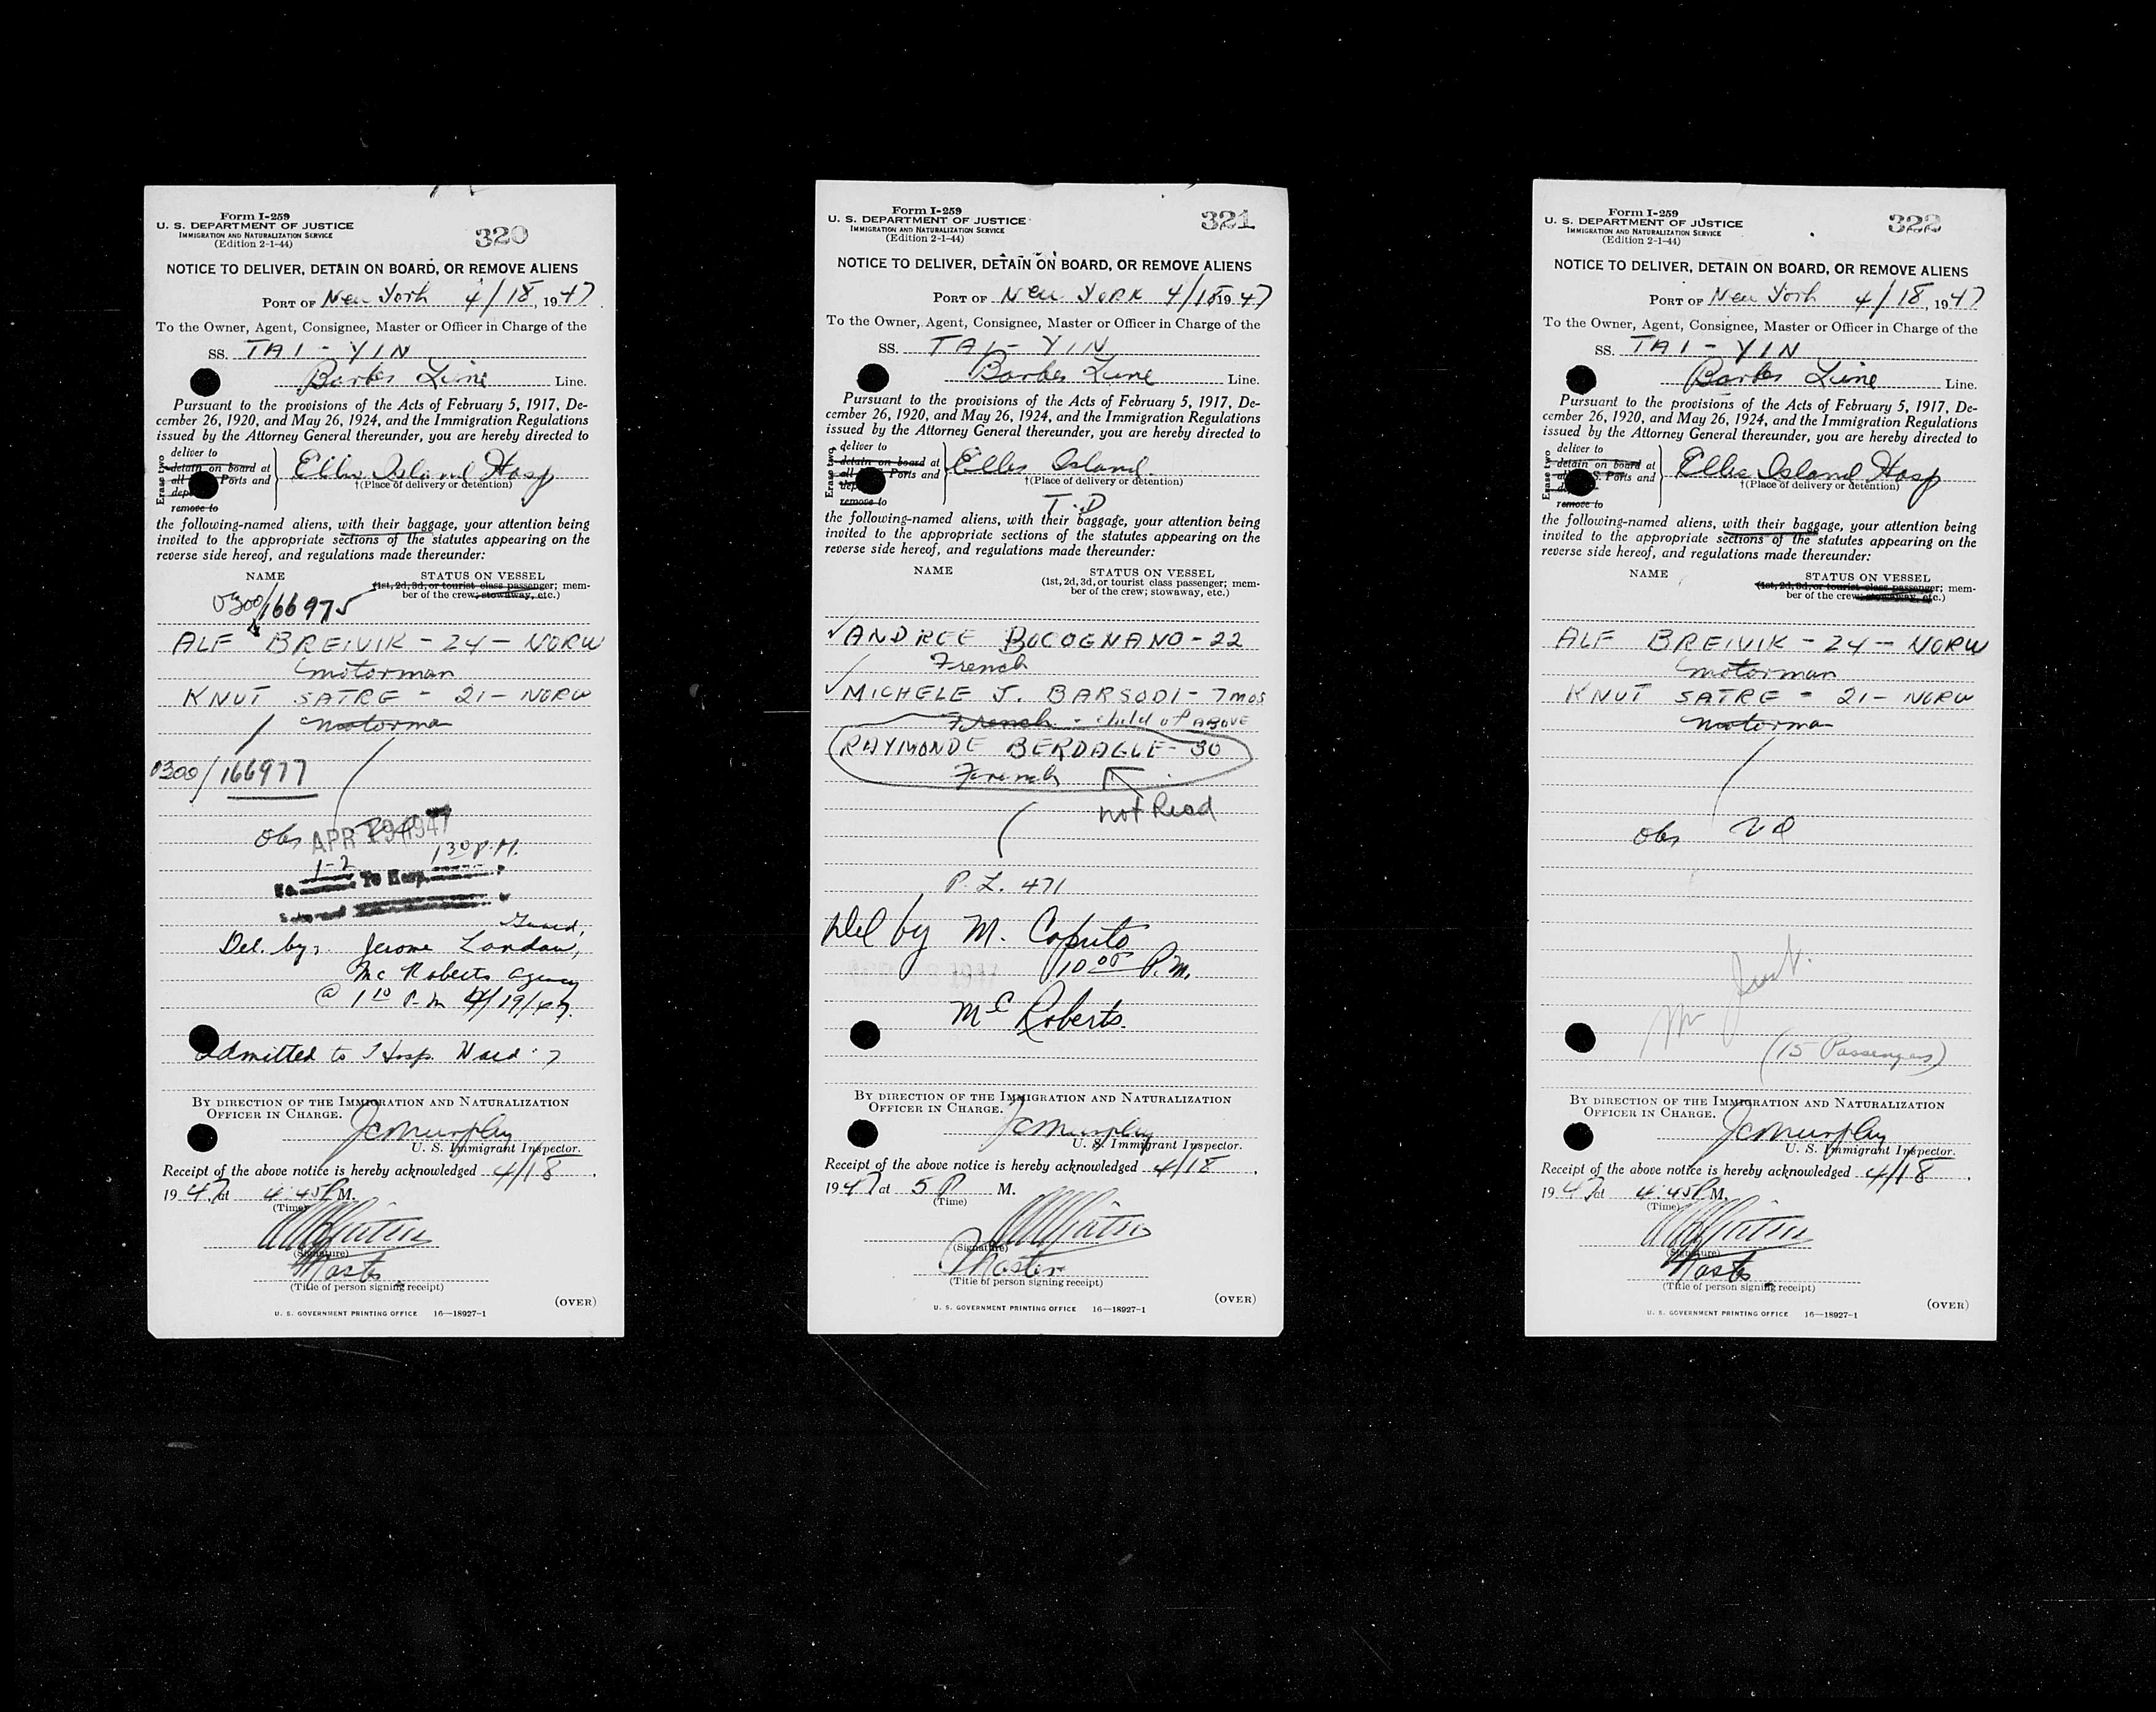 Form I-259
U. S. DEPARTMENT OF JUSTICE
IMMIGRATION AND NATURALIZATION SERVICE
(Edition 2-1-44)
320
NOTICE TO DELIVER, DETAIN ON BOARD, OR REMOVE ALIENS
PORT OF New York 4/18, 1947
To the Owner, Agent, Consignee, Master or Officer in Charge of the
SS. TAI-YIN
Barber Line Line.
Pursuant to the provisions of the Acts of February 5, 1917, De-
cember 26, 1920, and May 26, 1924, and the Immigration Regulations
issued by the Attorney General thereunder, you are hereby directed to
Erase two
deliver to
detain on board at
all Ports and
remove to
Ellis Island Hosp
†(Place of delivery or detention)
the following-named aliens, with their baggage, your attention being
invited to the appropriate sections of the statutes appearing on the
reverse side hereof, and regulations made thereunder:
NAME STATUS ON VESSEL
(1st, 2d, 3d, or tourist class passenger; mem-
ber of the crew; stowaway, etc.)
0300/166975
ALF BREIVIK - 24 - NORW
motorman
KNUT SATRE - 21 - NORW
motorman
0300/166977
Obs
APR 19 1947
1-2 130 P.M.
No. To Hosp.
Guard,
Del. by: Jerome Landau,
McRoberts Agency
@ 1 10 P.M 4/19/47.
Admitted to Hosp. Ward 7
BY DIRECTION OF THE IMMIGRATION AND NATURALIZATION
OFFICER IN CHARGE.
JCMurphy
U. S. Immigrant Inspector.
Receipt of the above notice is hereby acknowledged 4/18.
1947 at 4:45 P M.
(Time)
(Signature)
Master
(Title of person signing receipt)
(OVER)
U. S. GOVERNMENT PRINTING OFFICE 16—18927-1
Form I-259
U. S. DEPARTMENT OF JUSTICE
IMMIGRATION AND NATURALIZATION SERVICE
(Edition 2-1-44)
321
NOTICE TO DELIVER, DETAIN ON BOARD, OR REMOVE ALIENS
PORT OF New York 4/18 1947
To the Owner, Agent, Consignee, Master or Officer in Charge of the
SS. TAI-YIN
Barber Line Line.
Pursuant to the provisions of the Acts of February 5, 1917, De-
cember 26, 1920, and May 26, 1924, and the Immigration Regulations
issued by the Attorney General thereunder, you are hereby directed to
Erase two
deliver to
detain on board at
all Ports and
remove to
Ellis Island
†(Place of delivery or detention)
T.D
the following-named aliens, with their baggage, your attention being
invited to the appropriate sections of the statutes appearing on the
reverse side hereof, and regulations made thereunder:
NAME STATUS ON VESSEL
(1st, 2d, 3d, or tourist class passenger; mem-
ber of the crew; stowaway, etc.)
✓ ANDREE BOCOGNANO - 22
French
✓ MICHELE J. BARSODI - 7 mos
French - child of ABOVE
RAYMONDE BERDAGLE - 30
French
not Recd
P.L. 471
Del by M. Caputo
10 00 P.M.
McRoberts.
BY DIRECTION OF THE IMMIGRATION AND NATURALIZATION
OFFICER IN CHARGE.
JCMurphy
U. S. Immigrant Inspector.
Receipt of the above notice is hereby acknowledged 4/18.
1947 at 5 P M.
(Time)
(Signature)
Master
(Title of person signing receipt)
(OVER)
U. S. GOVERNMENT PRINTING OFFICE 16—18927-1
Form I-259
U. S. DEPARTMENT OF JUSTICE
IMMIGRATION AND NATURALIZATION SERVICE
(Edition 2-1-44)
322
NOTICE TO DELIVER, DETAIN ON BOARD, OR REMOVE ALIENS
PORT OF New York 4/18, 1947
To the Owner, Agent, Consignee, Master or Officer in Charge of the
SS. TAI-YIN
Barber Line Line.
Pursuant to the provisions of the Acts of February 5, 1917, De-
cember 26, 1920, and May 26, 1924, and the Immigration Regulations
issued by the Attorney General thereunder, you are hereby directed to
Erase two
deliver to
detain on board at
S. Ports and
remove to
Ellis Island Hosp
†(Place of delivery or detention)
the following-named aliens, with their baggage, your attention being
invited to the appropriate sections of the statutes appearing on the
reverse side hereof, and regulations made thereunder:
NAME STATUS ON VESSEL
(1st, 2d, 3d, or tourist class passenger; mem-
ber of the crew; stowaway, etc.)
ALF BREIVIK - 24 - NORW
motorman
KNUT SATRE - 21 - NORW
motorman
Obs VD
(15 Passengers)
BY DIRECTION OF THE IMMIGRATION AND NATURALIZATION
OFFICER IN CHARGE.
JCMurphy
U. S. Immigrant Inspector.
Receipt of the above notice is hereby acknowledged 4/18.
1947 at 4:45 P M.
(Time)
(Signature)
Master
(Title of person signing receipt)
(OVER)
U. S. GOVERNMENT PRINTING OFFICE 16—18927-1